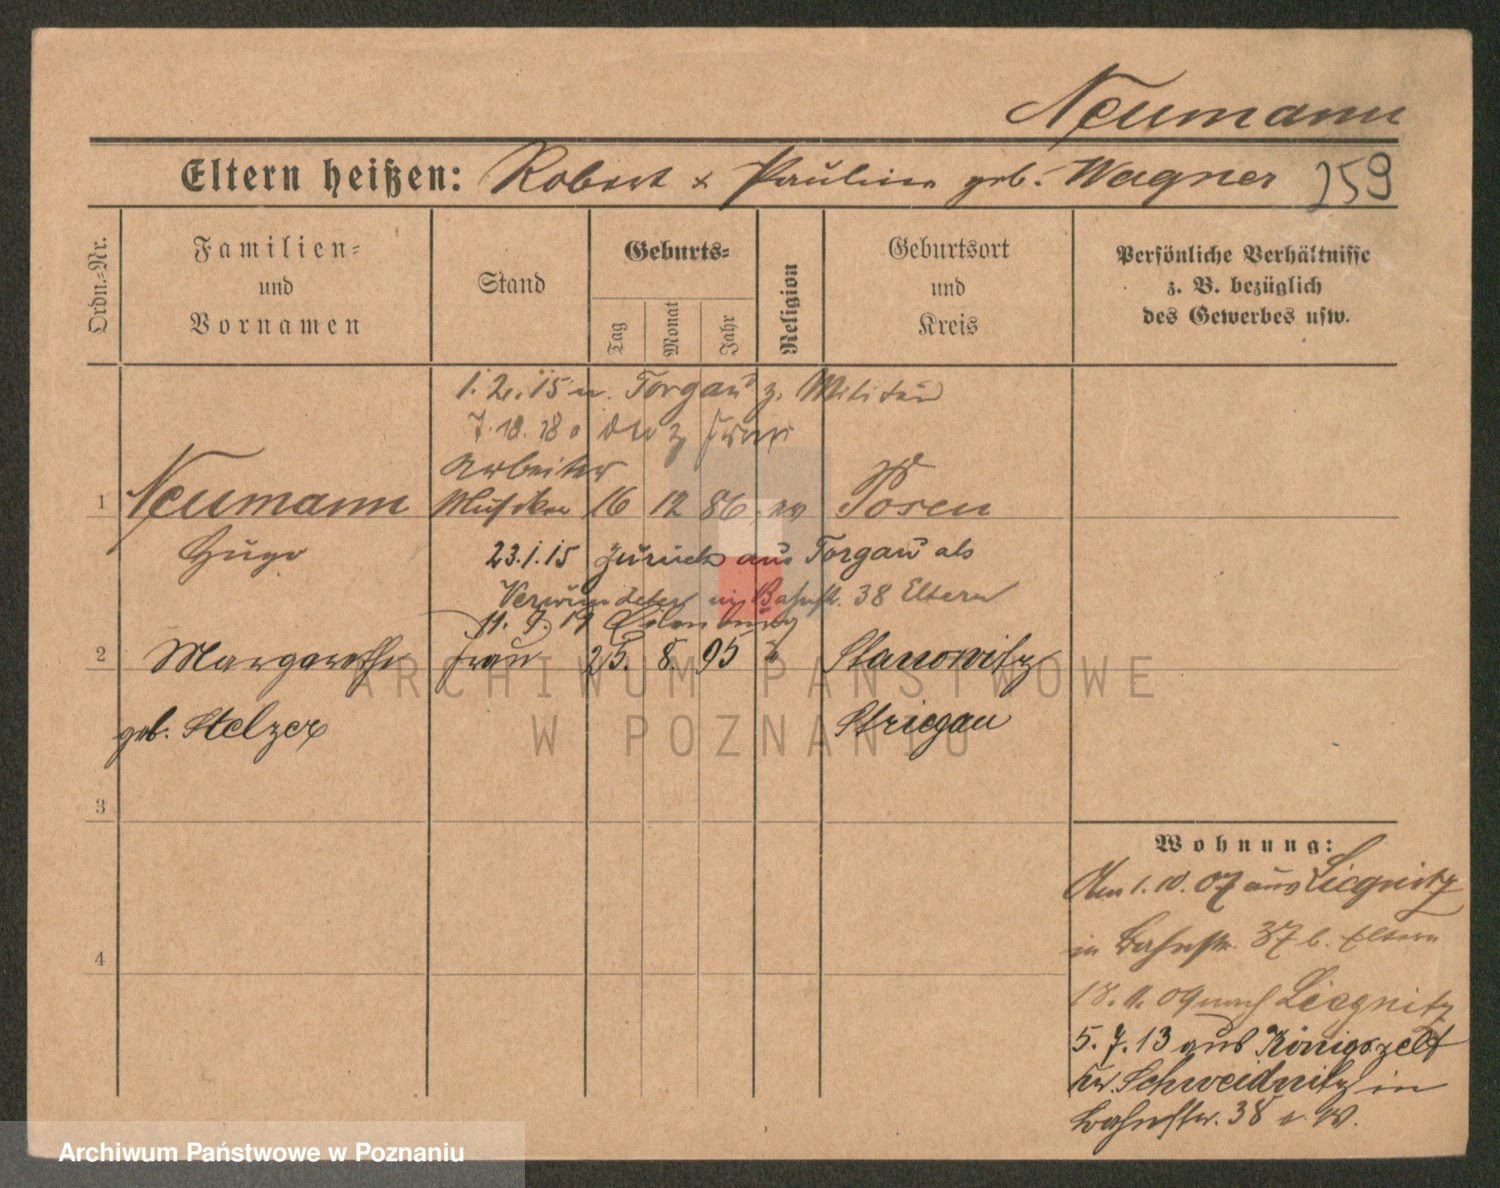 Neumann
Eltern heißen: Robert & Pauline geb. Wagner 259
Ordn.-Nr.
Familien- und Vornamen
Stand
Geburts-
Tag
Monat
Jahr
Religion
Geburtsort und Kreis
Persönliche Verhältnisse
z. B. bezüglich
des Gewerbes usw.
1.2.15 n. Torgau z. Militär
Arbeiter
1 Neumann Musiker 16 12 86 ev Posen
Hugo 23.1.15 zurück aus Torgau als
Verwundeter in Bahnstr. 38 Eltern
11. 9. 19
2 Margarethe Frau 25. 8. 95 " Stanowitz
geb. Stelzer Striegau
3
Wohnung:
Am 1.10.07 aus Liegnitz
in Bahnstr. 37 b. Eltern
4
nach Liegnitz
5.7.13 aus Königszelt
Kr. Schweidnitz in
Bahnstr. 38 e. W.
ARCHIWUM PAŃSTWOWE
W POZNANIU
Archiwum Państwowe w Poznaniu